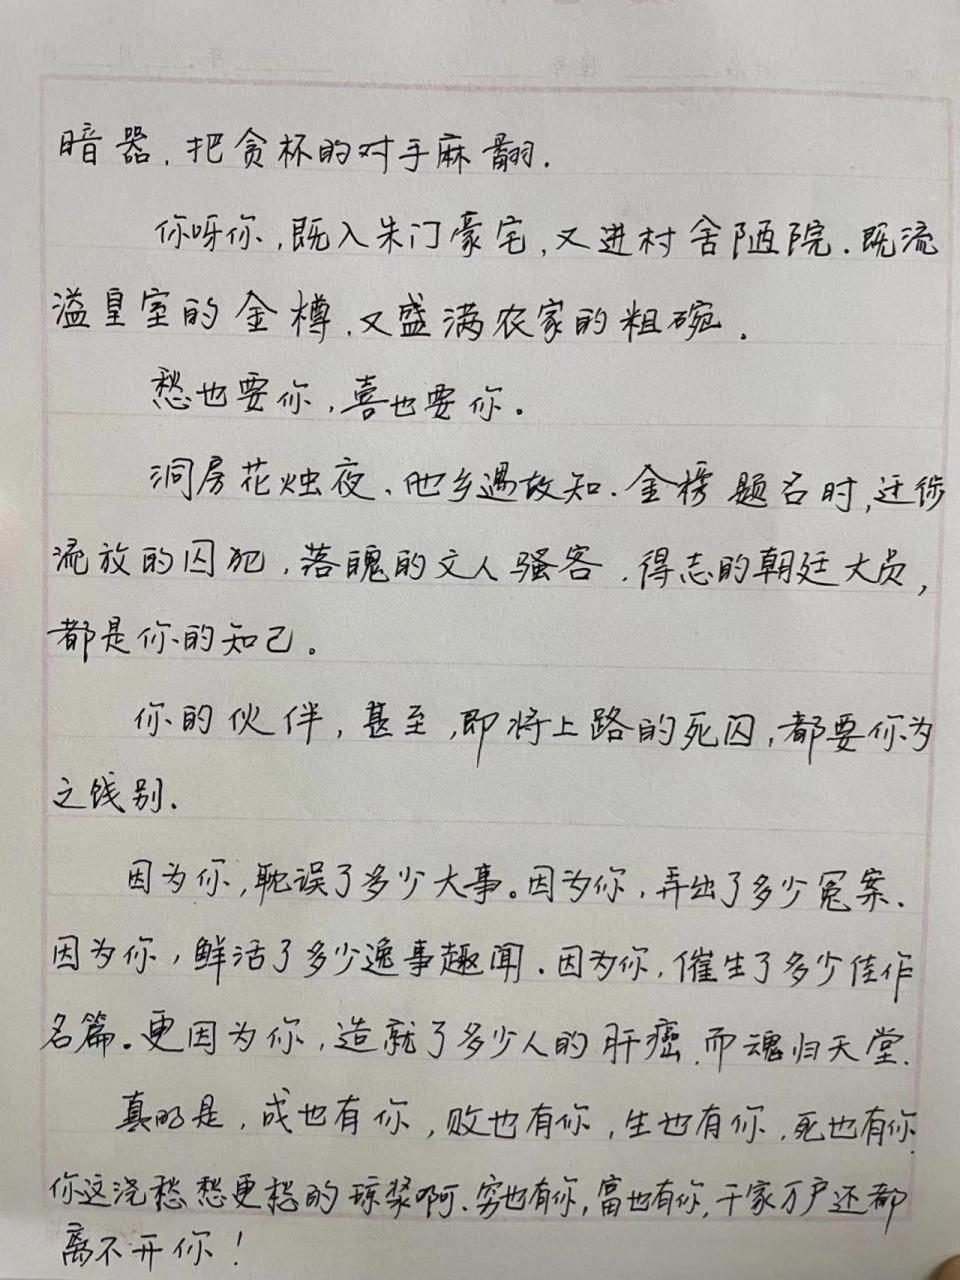 暗器，把贪杯的对手麻翻．
你呀你，既入朱门豪宅，又进村舍陋院．既流
溢皇室的金樽，又盛满农家的粗碗．
愁也要你，喜也要你。
洞房花烛夜、他乡遇故知．金榜题名时，迁徙
流放的囚犯，落魄的文人骚客．得志的朝廷大员，
都是你的知己。
你的伙伴，甚至，即将上路的死囚，都要你为
之饯别．
因为你，耽误了多少大事。因为你，弄出了多少冤案．
因为你，鲜活了多少逸事趣闻．因为你，催生了多少佳作
名篇。更因为你，造就了多少人的肝癌，而魂归天堂．
真的是，成也有你，败也有你，生也有你，死也有你．
你这浇愁愁更愁的琼浆啊．穷也有你，富也有你，千家万户还都
离不开你！